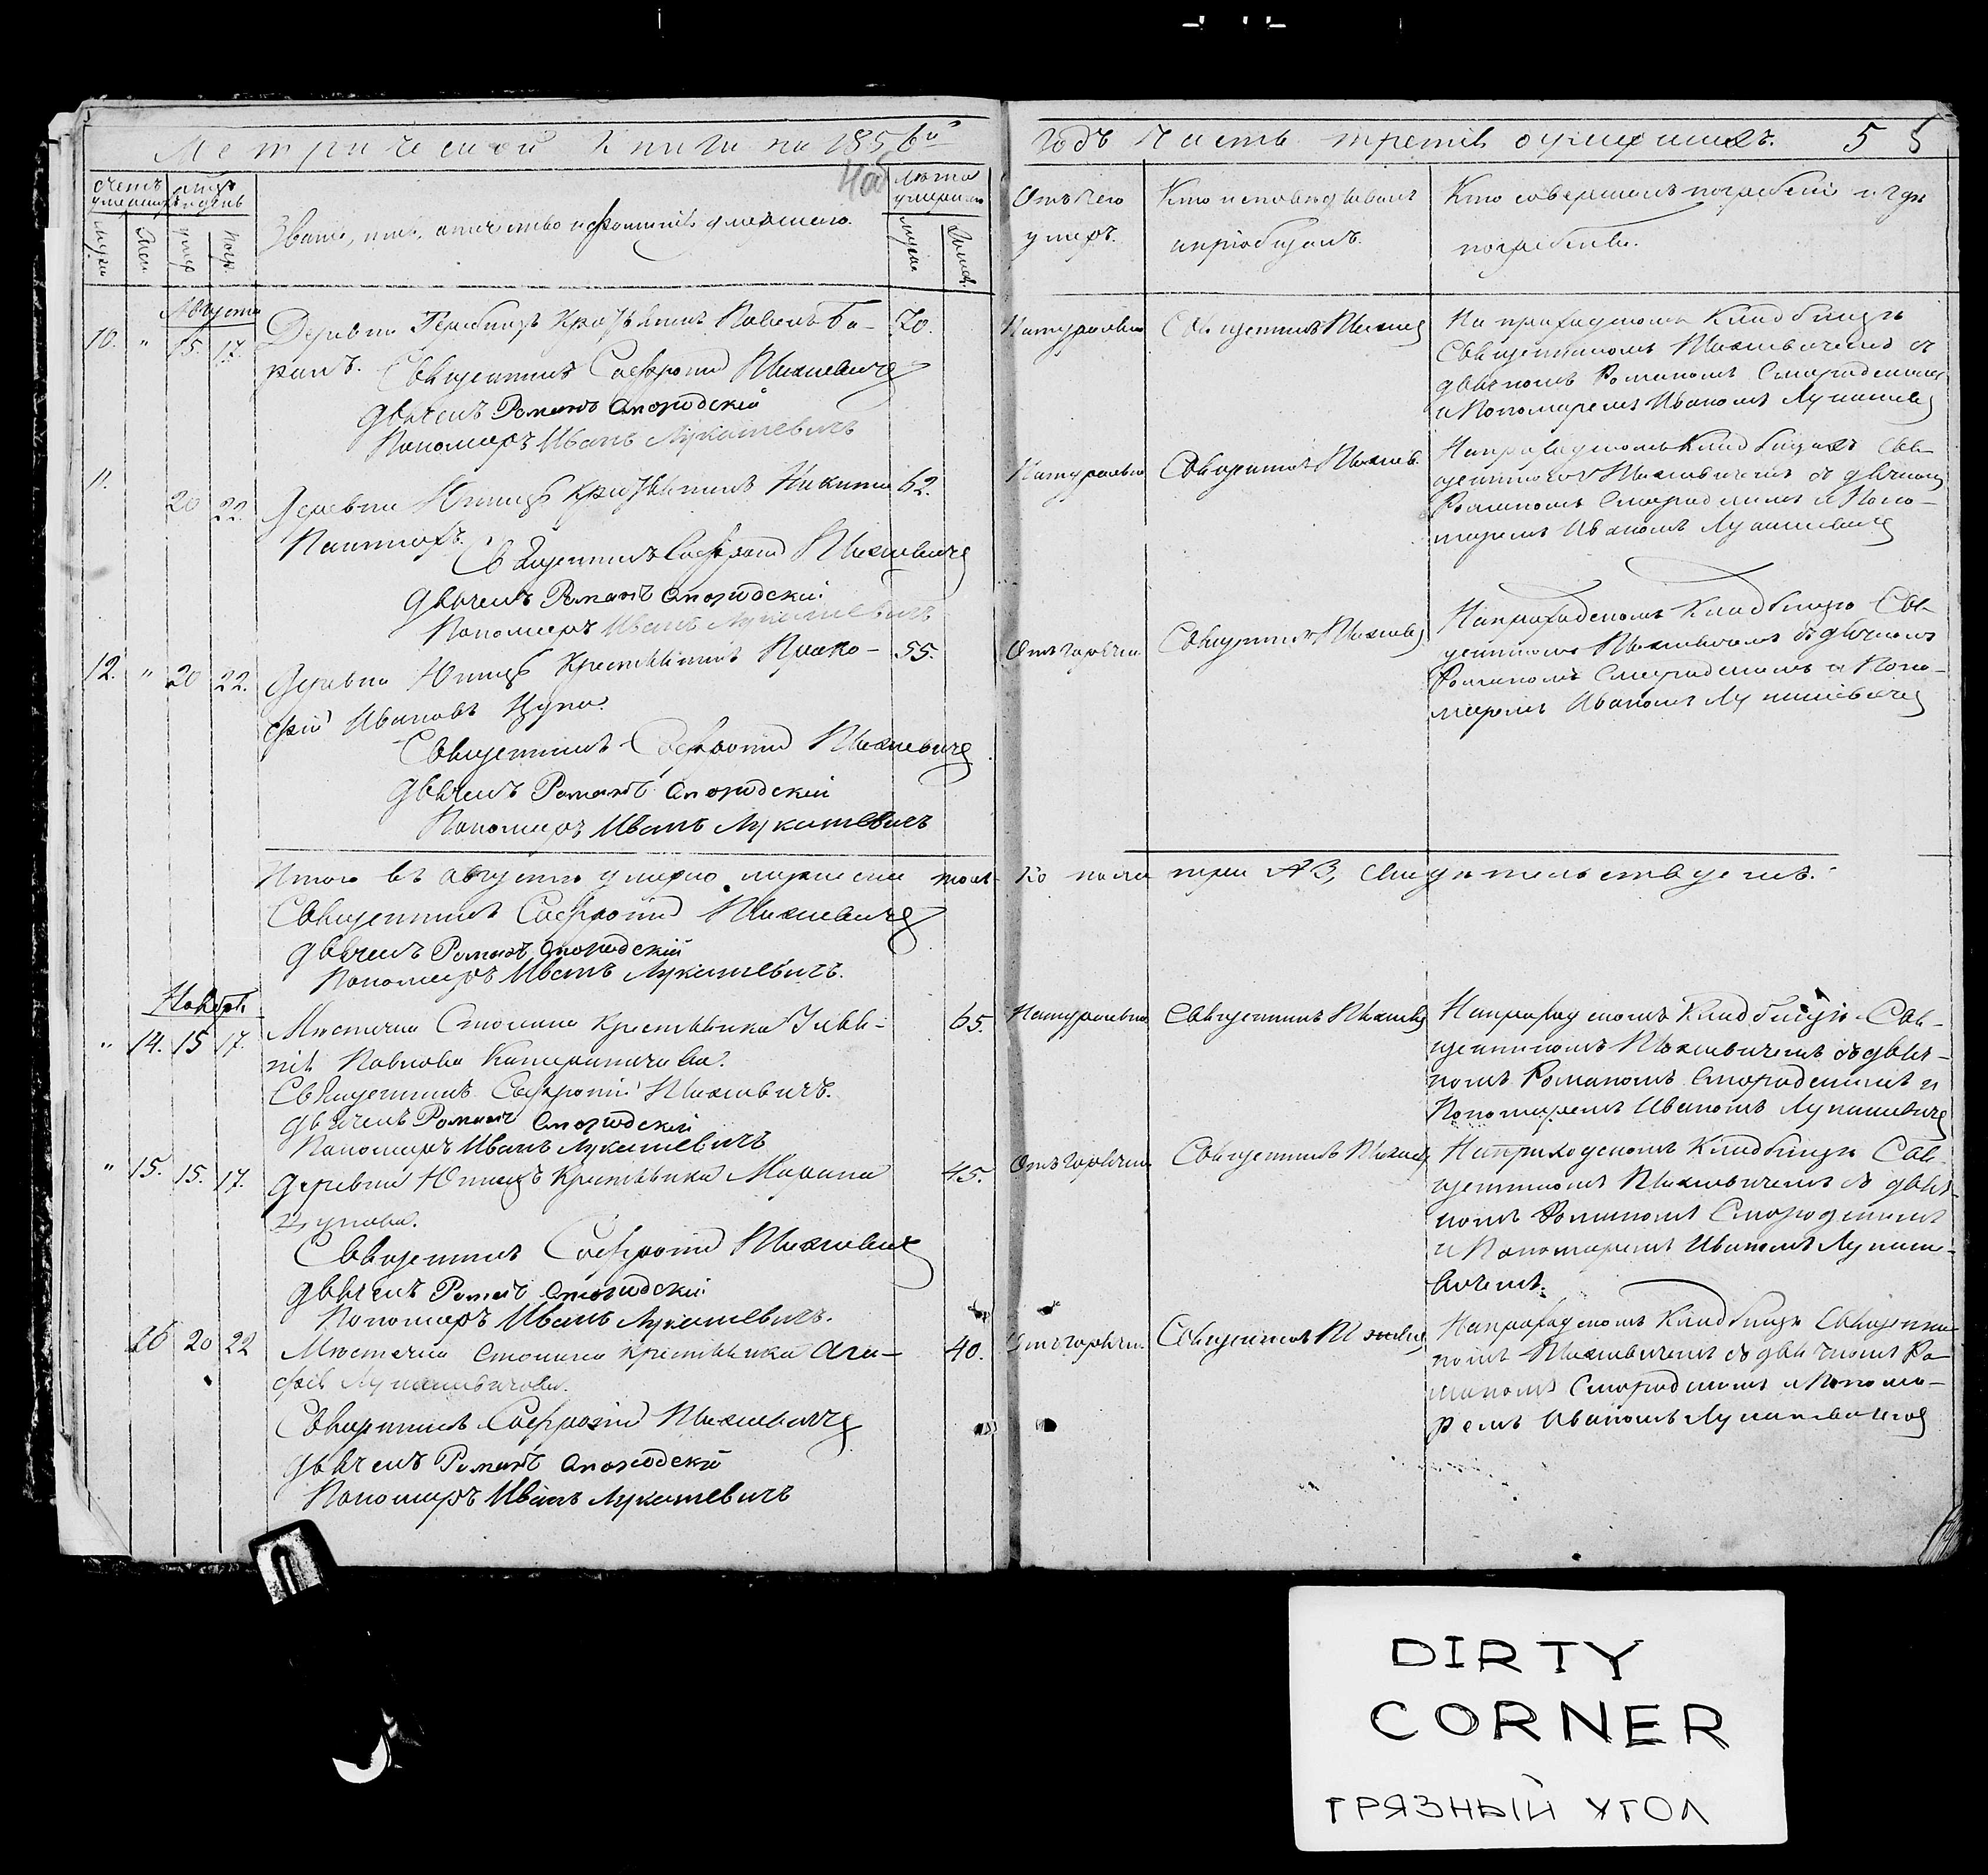 Метрической Книги на 1856й
годъ часть третія о умершихъ. 55
счетъ умершихъ
мѣсяцъ и день
Званіе, имя, отчество и фамилія умершаго.
лѣта умершаго
Отъ чего умеръ.
Кто исповѣдывалъ и пріобщалъ.
Кто совершалъ погребеніе и гдѣ погребены.
Августа
10. " 15. 17.
Деревни Крестьянинъ Павелъ Ба- 70.
ранъ. Священникъ Софроній Михневичъ
дьячекъ Романъ Смородскій
Пономарь Иванъ Лукашевичъ
Натурально
Священникъ Михнев
На приходскомъ Кладбищѣ
Священникомъ Михневичемъ съ
дьячкомъ Романомъ Смородскимъ
и Пономаремъ Иваномъ Лукашев
11. 20 22.
Деревни Юницъ Крестьянинъ Никита 62.
Священникъ Софроній Михневичъ
дьячекъ Романъ Смородскій
Пономарь Иванъ Лукашевичъ
Натурально
Священникъ Михнев.
На приходскомъ Кладбищѣ Свя-
щенникомъ Михневичемъ съ дьячкомъ
Романомъ Смородскимъ и Поно-
маремъ Иваномъ Лукашевич
12. " 20 22.
Деревни Юницъ Крестьянинъ Проко- 55.
фій Ивановъ Цупа.
Священникъ Софроній Михневичъ
дьячекъ Романъ Смородскій
Пономарь Иванъ Лукашевичъ
Отъ горячки
Священникъ Михнев
На приходскомъ Кладбищѣ Свя-
щенникомъ Михневичемъ съ дьячкомъ
Романомъ Смородскимъ и Поно-
маремъ Иваномъ Лукашевичем
Итого въ августѣ умерло мужеска толь-
ко пола три №3, свидѣтельствуемъ.
Священникъ Софроній Михневичъ
дьячекъ Романъ Смородскій
Пономарь Иванъ Лукашевичъ.
Ноября
" 14. 15 17.
Мѣстечка Столина Крестьянка Улья- 65.
на Павлова
Священникъ Софроній Михневичъ.
дьячекъ Романъ Смородскій
Пономарь Иванъ Лукашевичъ
Натурально
Священникъ Михнев
На приходскомъ Кладбищѣ Свя-
щенникомъ Михневичемъ съ дьяч-
комъ Романомъ Смородскимъ и
Пономаремъ Иваномъ Лукашевиче
" 15. 15. 17.
Деревни Юницъ Крестьянка Марина 45.
Цупова.
Священникъ Софроній Михневичъ
дьячекъ Романъ Смородскій
Пономарь Иванъ Лукашевичъ.
Отъ горячки
Священникъ Михнев
На приходскомъ Кладбищѣ Свя-
щенникомъ Михневичемъ съ дьяч-
комъ Романомъ Смородскимъ
и Пономаремъ Иваномъ Лукаше-
вичемъ.
16 20 22
Мѣстечка Столина Крестьянка Ага- 40.
фія Лукашевичова.
Священникъ Софроній Михневичъ
дьячекъ Романъ Смородскій
Пономарь Иванъ Лукашевичъ
Отъ горячки.
Священникъ Михнев
На приходскомъ Кладбищѣ Священни-
комъ Михневичемъ съ дьячкомъ Ро-
маномъ Смородскимъ и Понома-
ремъ Иваномъ Лукашевичем
DIRTY
CORNER
ГРЯЗНЫЙ УГОЛ